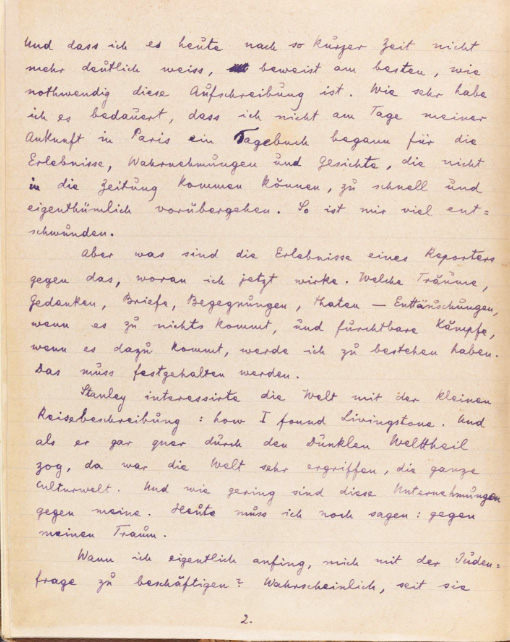 Und dass ich es heute nach so kurzer Zeit nicht
mehr deutlich weiss, beweist am besten, wie
nothwendig diese Aufschreibung ist. Wie sehr habe
ich es bedauert, dass ich nicht am Tage meiner
Ankunft in Paris ein Tagebuch begann für die
Erlebnisse, Wahrnehmungen und Gesichte, die nicht
in die Zeitung kommen können, zu schnell und
eigenthümlich vorübergehen. So ist mir viel ent=
schwunden.
Aber was sind die Erlebnisse eines Reporters
gegen das, woran ich jetzt wirke. Welche Träume,
Gedanken, Briefe, Begegnungen, Thaten — Enttäuschungen,
wenn es zu nichts kommt, und furchtbare Kämpfe,
wenn es dazu kommt, werde ich zu bestehen haben.
Das muss festgehalten werden.
Stanley interessirte die Welt mit der kleinen
Reisebeschreibung: how I found Livingstone. Und
als er gar quer durch den Dunklen Welttheil
zog, da war die Welt sehr ergriffen, die ganze
Culturwelt. Und wie gering sind diese Unternehmungen
gegen meine. Heute muss ich noch sagen: gegen
meinen Traum.
Wann ich eigentlich anfing, mich mit der Juden=
frage zu beschäftigen? Wahrscheinlich, seit sie
2.